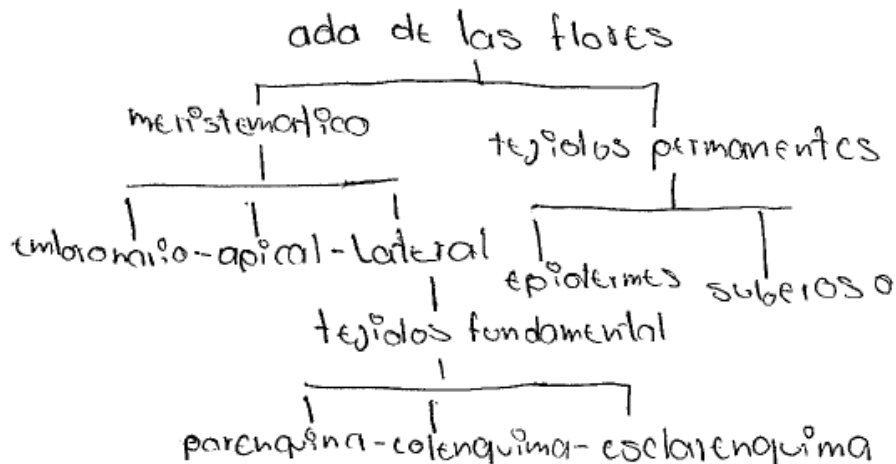 ada de las flores
meristematico
tejidos permanentes
embrionario-apical-Lateral
epidermes
suberoso
tejidos fundamental
parenquina-colenquima-esclarenquima